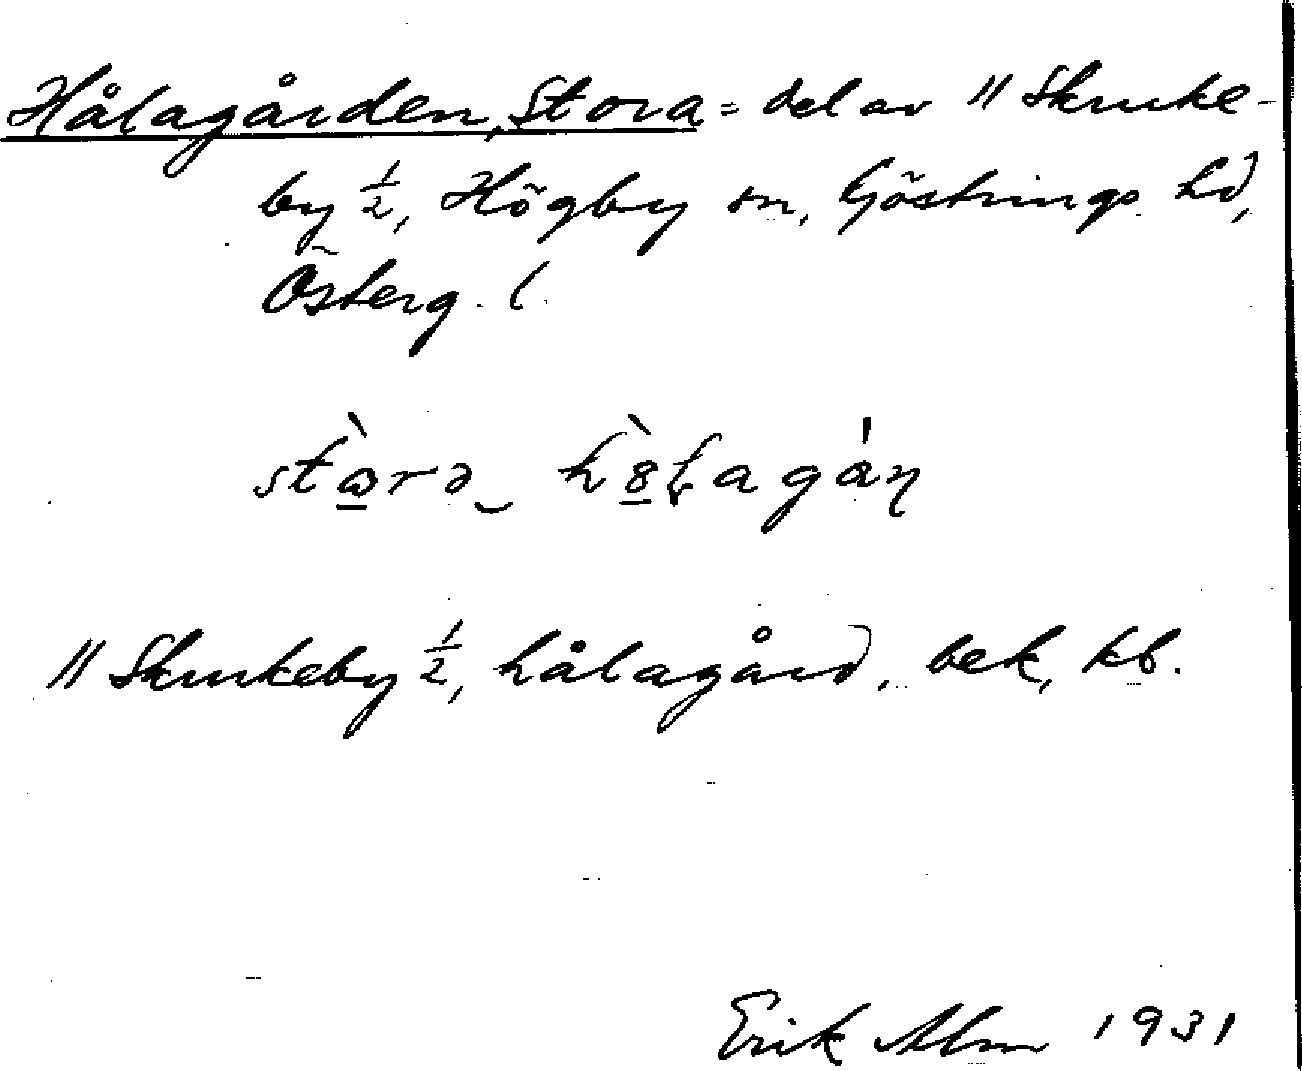 Hålagården, Stora = del av // Skruke-
by 1/2, Högby sn, Göstrings hd,
Österg. l.
// Skrukeby 1/2, hålagård, bek, kb.
Erik Alm 1931